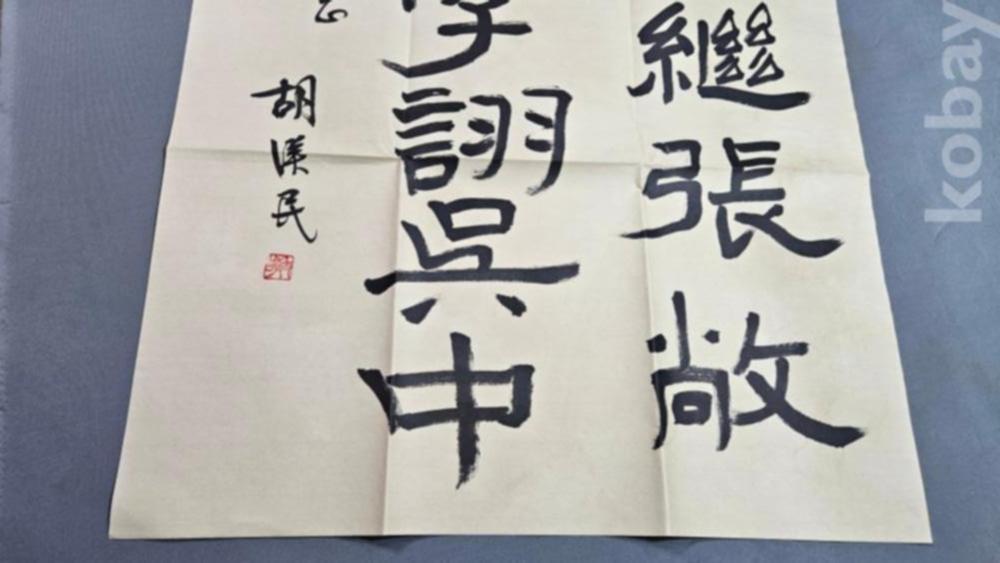 繼張敞
字詡吳中
正
胡漢民
kobay